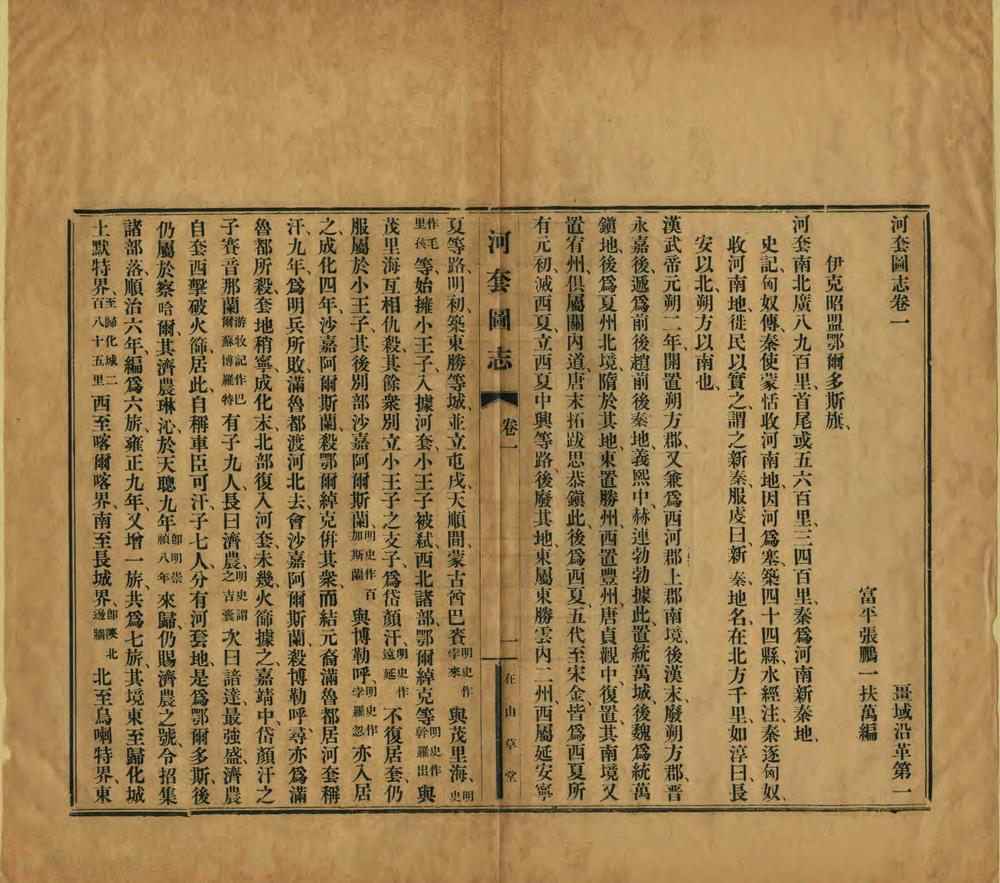 河套圖志卷一 畺域沿革第一
富平張鵬一扶萬編
伊克昭盟鄂爾多斯旗、
河套南北廣八九百里、首尾或五六百里、三四百里、秦爲河南新秦地、
史記、匈奴傳、秦使蒙恬收河南地、因河爲塞、築四十四縣、水經注、秦逐匈奴、
收河南地、徙民以實之、謂之新秦、服虔曰、新秦、地名、在北方千里、如淳曰、長
安以北、朔方以南也、
漢武帝元朔二年開置朔方郡、又兼爲西河郡上郡南境、後漢末、廢朔方郡、晉
永嘉後、遞爲前後趙前後秦地、義熙中、赫連勃勃據此、置統萬城、後魏爲統萬
鎭地、後爲夏州北境、隋於其地、東置勝州、西置豐州、唐貞觀中、復置、其南境又
置宥州、俱屬關內道、唐末拓跋思恭鎭此、後爲西夏、五代至宋金、皆爲西夏所
有、元初、滅西夏、立西夏中興等路、後廢、其地東屬東勝雲內二州、西屬延安寧
河套圖志 卷一 一 在山草堂
夏等路、明初、築東勝等城、並立屯戍、天順間、蒙古酋巴賚明史作孛來、與茂里海、明史
作毛里孩等始擁小王子、入據河套、小王子被弒、西北諸部、鄂爾綽克等明史作斡羅出與
茂里海互相仇殺、其餘衆別立小王子之支子、爲岱顏汗、明史作達延不復居套、仍
服屬於小王子、其後別部沙嘉阿爾斯蘭、明史作百加斯蘭與博勒呼、明史作孛羅忽亦入居
之、成化四年、沙嘉阿爾斯蘭、殺鄂爾綽克、併其衆、而結元裔滿魯都居河套稱
汗、九年、爲明兵所敗、滿魯都渡河北去、會沙嘉阿爾斯蘭殺博勒呼、尋亦爲滿
魯都所殺、套地稍寧、成化末、北部復入河套、未幾、火篩據之、嘉靖中、岱顏汗之
子賽音那蘭游牧記作巴爾蘇博羅特有子九人、長曰濟農、明史謂之吉囊次曰諳達、最強盛、濟農
自套西擊破火篩居此、自稱車臣可汗、子七人、分有河套地、是爲鄂爾多斯、後
仍屬於察哈爾、其濟農琳沁於天聰九年即明崇禎八年來歸、仍賜濟農之號、令招集
諸部落、順治六年、編爲六旂、雍正九年、又增一旂、共爲七旂、其境東至歸化城
土默特界、至歸化城二百八十五里西至喀爾喀界、南至長城界、即陝北邊牆北至烏喇特界、東